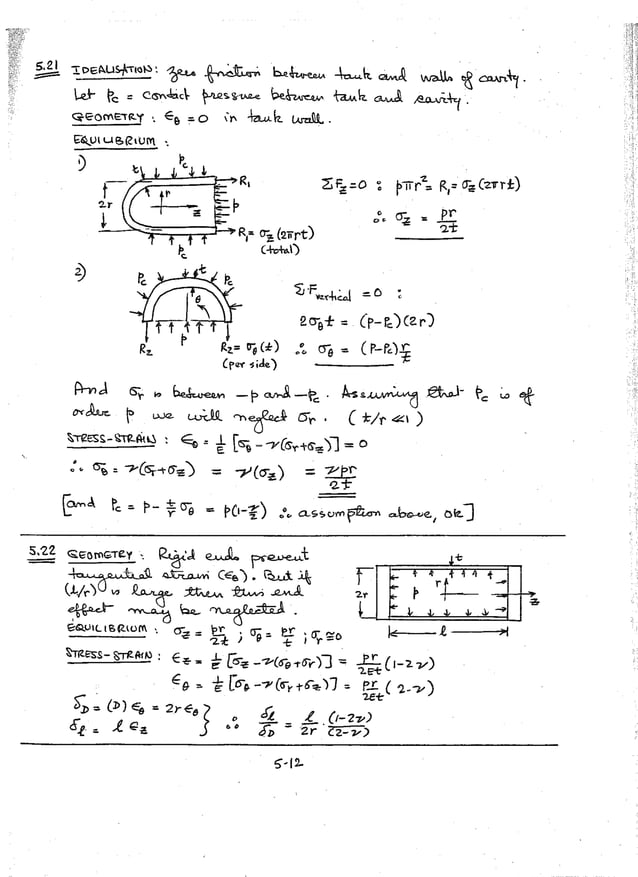 5.21 IDEALISATION: zero friction between tank and walls of cavity.
Let Pc = contact pressure between tank and cavity.
GEOMETRY: ϵθ = 0 in tank wall.
EQUILIBRIUM:
1)
Pc
t
R1
2r
r
z
p
R1 = σz (2πrt)
(total)
Pc
ΣFz = 0 : pπr² = R1 = σz (2πrt)
∴ σz = pr/2t
2)
Pc
t
Pc
θ
r
p
R2
R2 = σθ (t)
(per side)
ΣFvertical = 0 :
2σθt = (P-Pc)(2r)
∴ σθ = (P-Pc) r/t
And σr is between -p and -Pc. Assuming that Pc is of
order p we will neglect σr. (t/r ≪ 1)
STRESS-STRAIN: ϵθ = 1/E [σθ - ν(σr+σz)] = 0
∴ σθ = ν(σr+σz) = ν(σz) = νpr/2t
[and Pc = p - t/r σθ = p(1-ν/2) ∴ assumption above, ok]
5.22 GEOMETRY: Rigid ends prevent
tangential strain (ϵθ). But if
(l/r) is large then this end
effect may be neglected.
t
2r
r
p
z
l
EQUILIBRIUM: σz = pr/2t ; σθ = pr/t ; σr ≅ 0
STRESS-STRAIN: ϵz = 1/E [σz - ν(σθ+σr)] = pr/2Et (1-2ν)
ϵθ = 1/E [σθ - ν(σr+σz)] = pr/2Et (2-ν)
δD = (D) ϵθ = 2r ϵθ
δl = l ϵz
∴ δl/δD = l/2r · (1-2ν)/(2-ν)
5-12